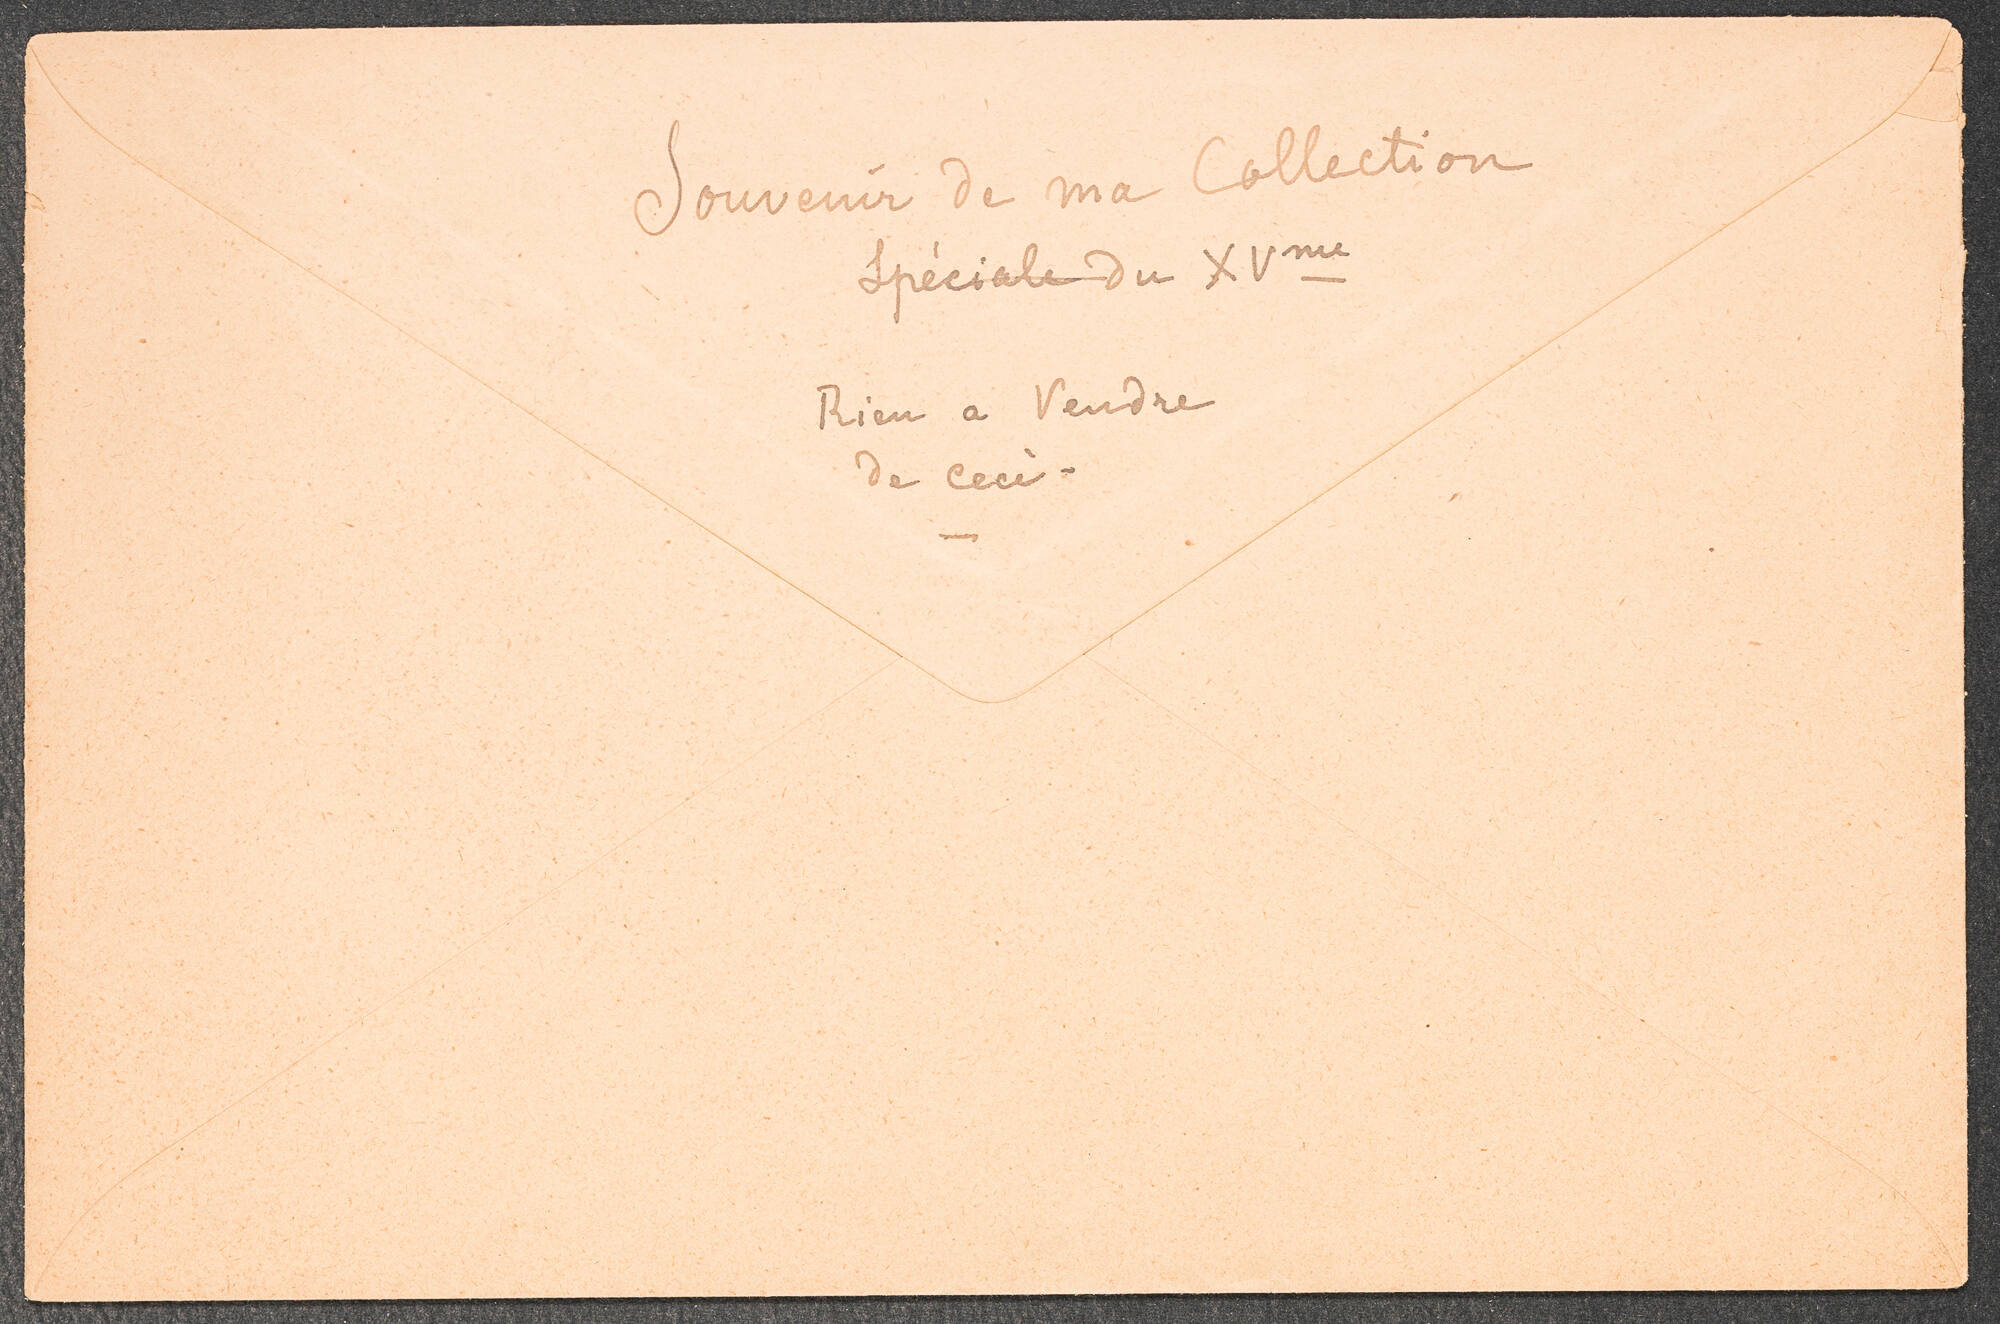 Souvenir de ma Collection
Spéciale du XVme
Rien a Vendre
de ceci -